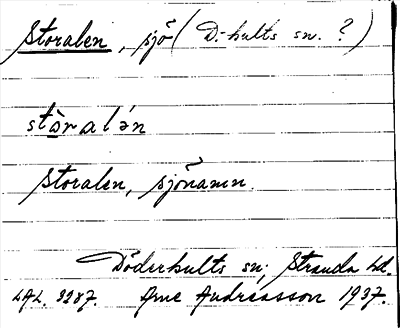 Storalen, sjö (D:hults sn. ?)
stòralən
Storalen, sjönamn.
Döderhults sn; Stranda hd.
LAL. 3287. Arne Andréasson 1937.